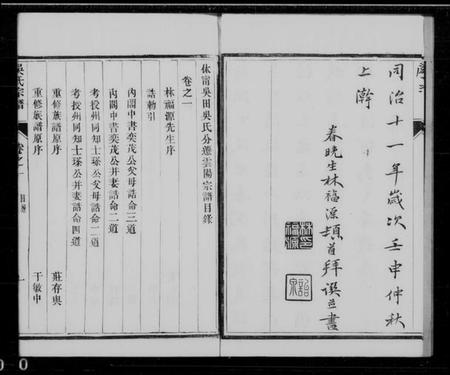 同治十一年歲次壬申仲秋
上澣
春曉生林福源頓首拜譔並書
休甯吳田吳氏分遷雲陽宗譜目錄
卷之一
林福源先生序
誥勅引
內閣中書奕茂公父母誥命三道
內閣中書奕茂公幷妻誥命二道
考授州同知士琢公父母誥命二道
考授州同知士琢公幷妻誥命四道
重修族譜原序 莊存與
重修族譜原序 于敏中
吳氏宗譜 卷之一 目錄 一
0 0